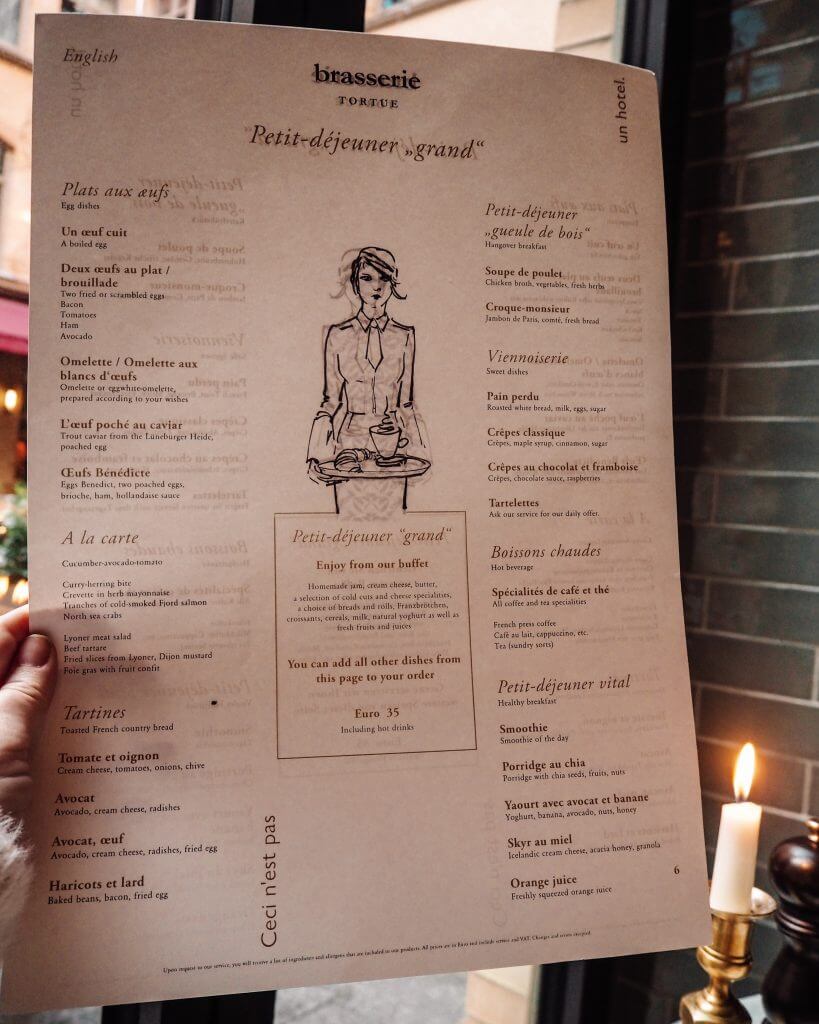 English
un hotel.
brasserie
TORTUE
Petit-déjeuner „grand“
Plats aux œufs
Egg dishes
Un œuf cuit
A boiled egg
Deux œufs au plat /
brouillade
Two fried or scrambled eggs
Bacon
Tomatoes
Ham
Avocado
Omelette / Omelette aux
blancs d‘œufs
Omelette or eggwhite-omelette,
prepared according to your wishes
L'œuf poché au caviar
Trout caviar from the Luneburger Heide,
poached egg
Œufs Bénédicte
Eggs Benedict, two poached eggs,
brioche, ham, hollandaise sauce
A la carte
Cucumber-avocado-tomato
Curry-herring bite
Crevette in herb mayonnaise
Tranches of cold-smoked Fjord salmon
North sea crabs
Lyoner meat salad
Beef tartare
Fried slices from Lyoner, Dijon mustard
Foie gras with fruit confit
Tartines
Toasted French country bread
Tomate et oignon
Cream cheese, tomatoes, onions, chive
Avocat
Avocado, cream cheese, radishes
Avocat, œuf
Avocado, cream cheese, radishes, fried egg
Haricots et lard
Baked beans, bacon, fried egg
Petit-déjeuner “grand“
Enjoy from our buffet
Homemade jam, cream cheese, butter,
a selection of cold cuts and cheese specialities,
a choice of breads and rolls, Franzbrötchen,
croissants, cereals, milk, natural yoghurt as well as
fresh fruits and juices
You can add all other dishes from
this page to your order
Euro 35
Including hot drinks
Ceci n'est pas
Petit-déjeuner
„gueule de bois“
Hangover breakfast
Soupe de poulet
Chicken broth, vegetables, fresh herbs
Croque-monsieur
Jambon de Paris, comté, fresh bread
Viennoiserie
Sweet dishes
Pain perdu
Roasted white bread, milk, eggs, sugar
Crêpes classique
Crêpes, maple syrup, cinnamon, sugar
Crêpes au chocolat et framboise
Crêpes, chocolate sauce, raspberries
Tartelettes
Ask our service for our daily offer.
Boissons chaudes
Hot beverage
Spécialités de café et thé
All coffee and tea specialities
French press coffee
Café au lait, cappuccino, etc.
Tea (sundry sorts)
Petit-déjeuner vital
Healthy breakfast
Smoothie
Smoothie of the day
Porridge au chia
Porridge with chia seeds, fruits, nuts
Yaourt avec avocat et banane
Yoghurt, banana, avocado, nuts, honey
Skyr au miel
Icelandic cream cheese, acacia honey, granola
Orange juice 6
Freshly squeezed orange juice
Upon request to our service, you will receive a list of ingredients and allergens that are included in our products. All prices are in Euro and include service and VAT. Changes and errors excepted.